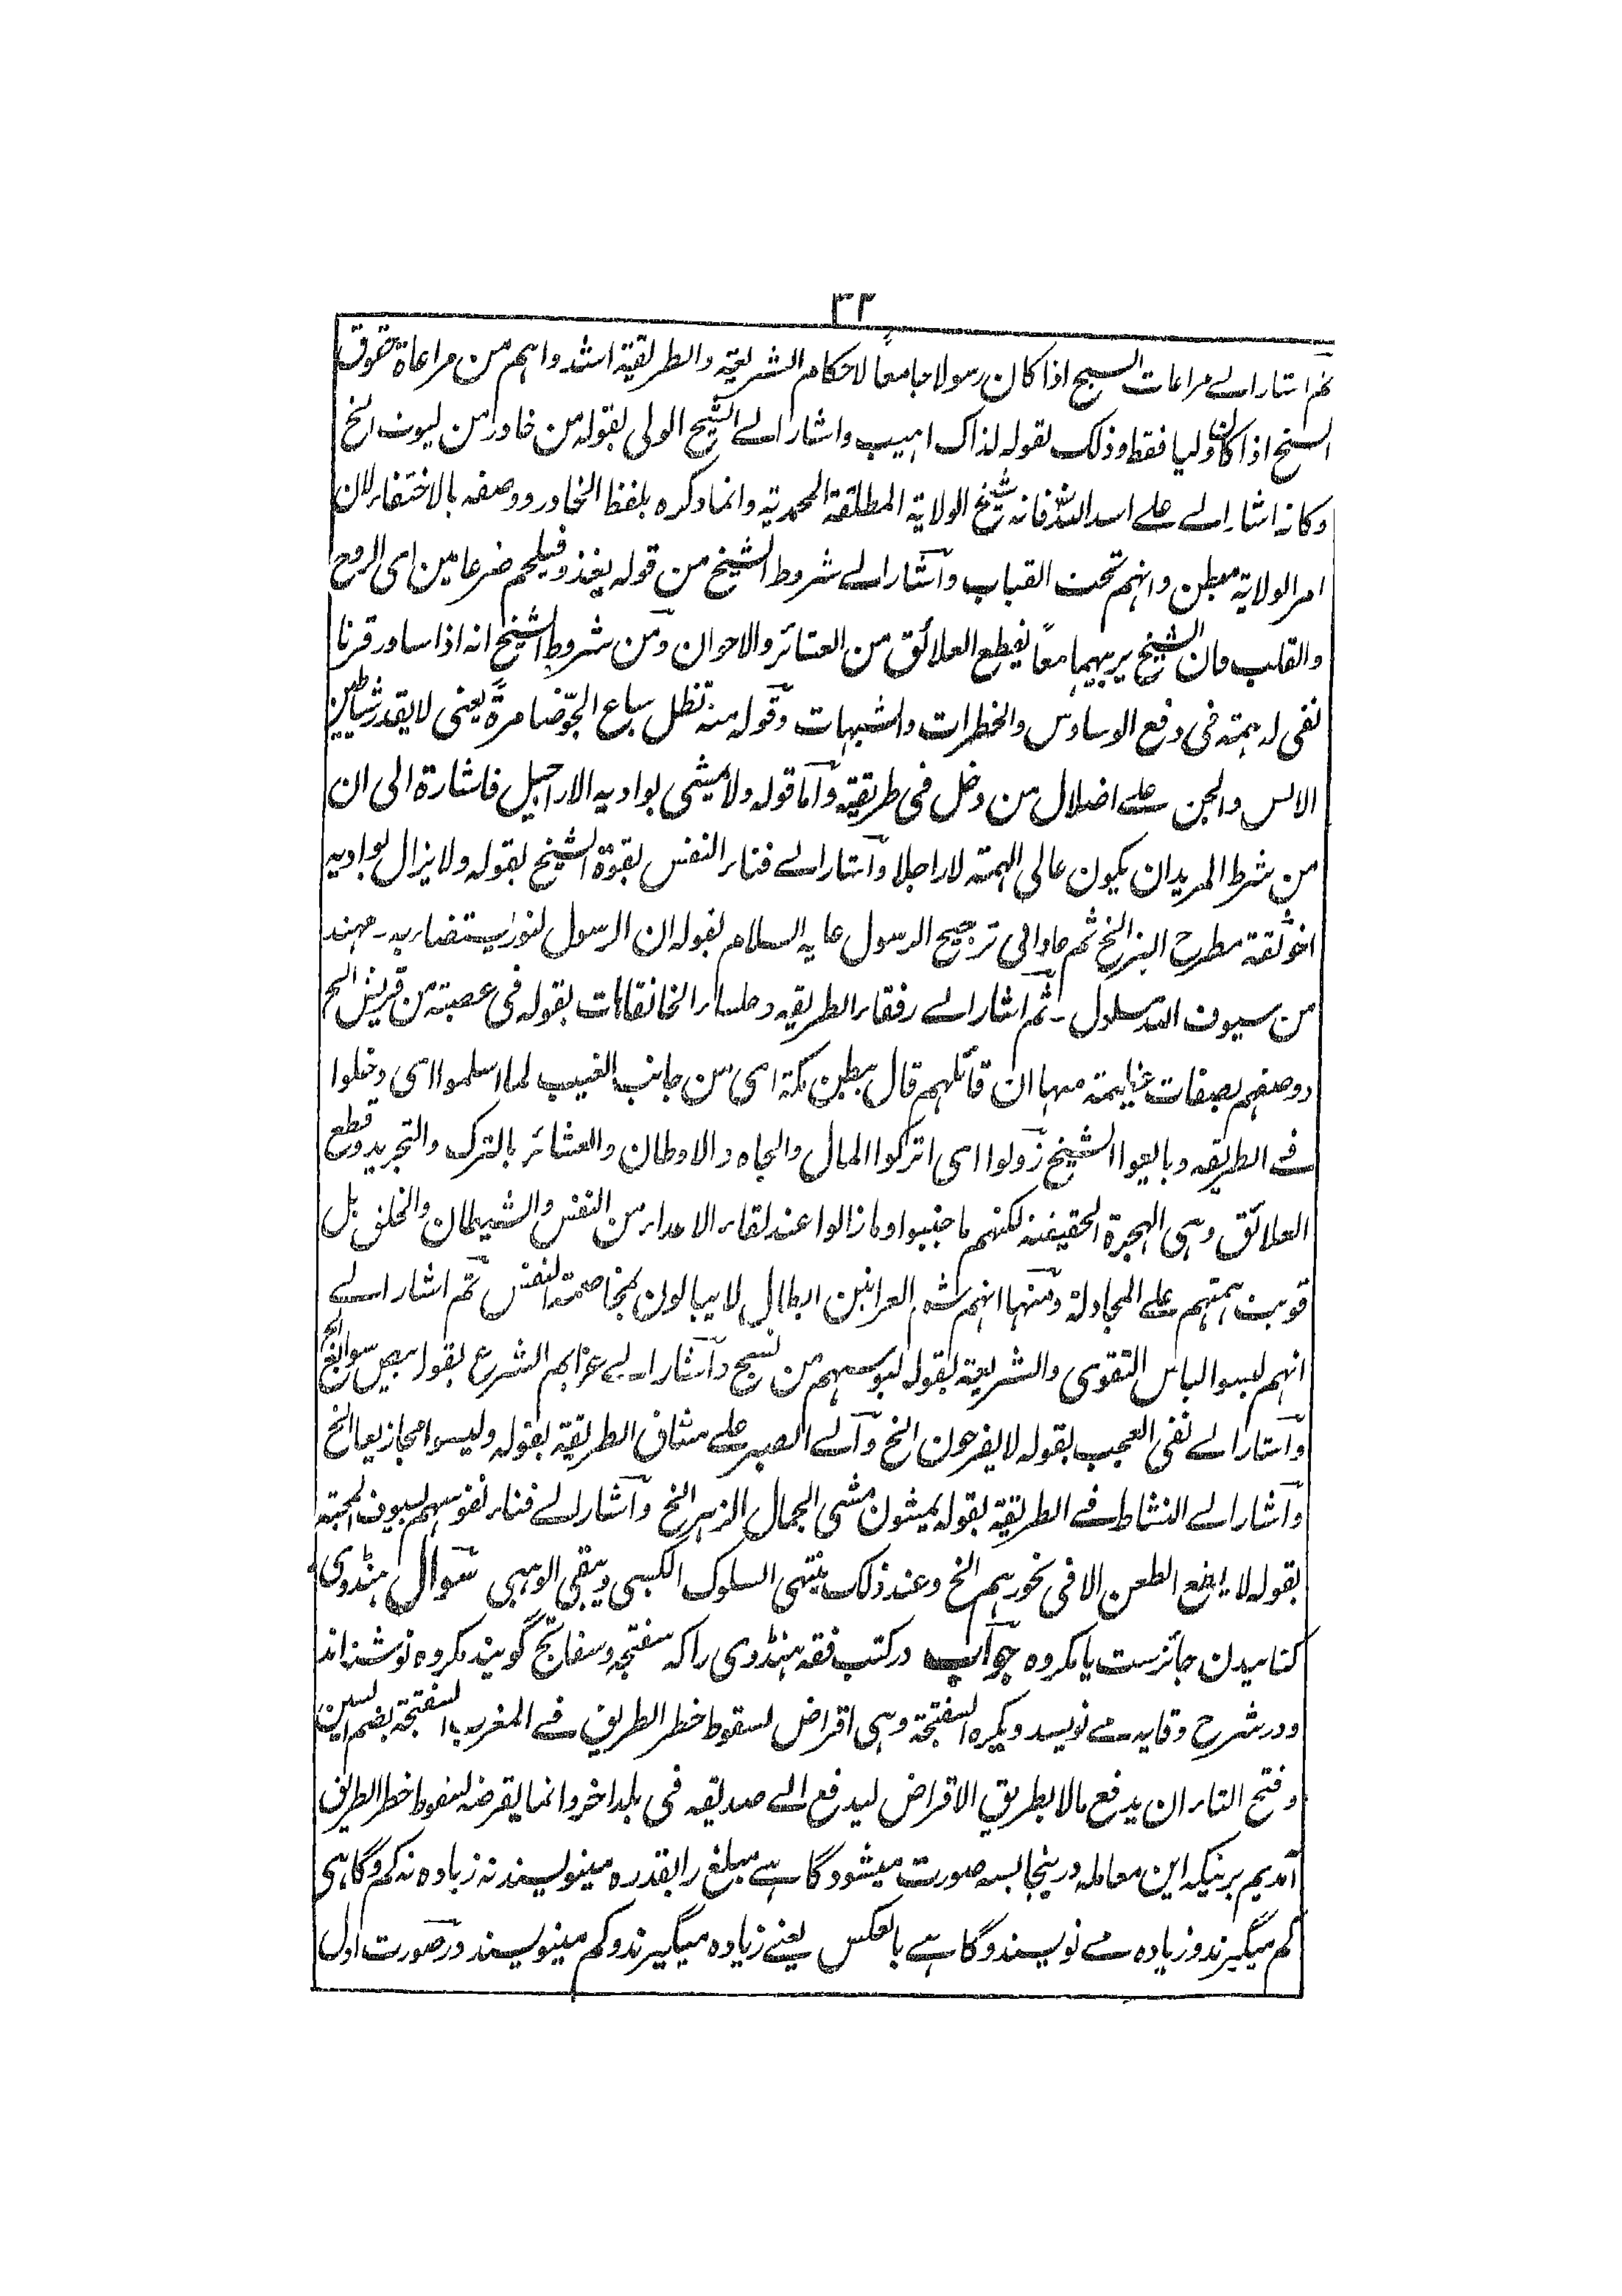 ٣٢
ثم اشار الے مراعات الشیخ اذا کان رسولا جامعا لاحکام الشریعة والطریقة اشد واہم من مراعاة حقوق
الشیخ اذا کان ولیا فقط وذلک بقوله لذاک اہیب واشار الے الشیخ الولی بقوله من خادر من لیوث الخ
وکانه اشار الے علے اسد اللہ فانه شیخ الولایة المطلقة المحمدیة وانما ذکره بلفظ الخادر ووصفه بالاختفاء لان
امر الولایة مبطن وانہم تحت القباب واشار الے شروط الشیخ من قوله یغذو فیلحم ضرغامین ای الروح
والقلب فان الشیخ یربیہما معاً بقطع العلائق من العشائر والاخوان ومن شروط الشیخ انه اذا ساور قرنا
نفی له ہمته فی دفع الوساوس والخطرات والشبہات وقوله منه تظل سباع الجوّ ضامرةً یعنی لا یقدر شیاطین
الانس والجن علے اضلال من دخل فی طریقته واما قوله ولا تمشی بوادیه الاراجیل فاشارة الی ان
من شرط المرید ان یکون عالی الہمة لا راجلا واشار الے فناء النفس بقوة الشیخ بقوله ولا یزال بوادیه
اخو ثقة مطرح البز الخ ثم عاد الی ترجیح الرسول علیه السلام بقوله ان الرسول لنور یستضاء به ۔ مہند
من سیوف اللہ مسلول ۔ ثم اشار الے رفقاء الطریقه وجلساء الخانقاہات بقوله فی عصبة من قریش الخ
ووصفہم بصفات عظیمة منہا ان قائلہم قال ببطن مکة ای من جانب الغیب لما اسلموا ای دخلوا
فے الطریقه وبایعوا الشیخ زولوا ای اترکوا المال والجاه والاوطان والعشائر بالترک والتجرید وقطع
العلائق وہی الہجرة الحقیقة لکنہم ما جنبوا وما زالوا عند لقاء الاعداء من النفس والشیطان والخلق بل
قویت ہمتہم علے المجادلة ومنہا انہم شم العرانین ابطال لا یبالون بمخاصمة النفس ثم اشار الے
انہم لبسوا لباس التقوی والشریعة بقوله لبوسہم من نسج واشار الے عزایم الشرع بقوله بیض سوابغ الخ
واشار الے نفی العجب بقوله لا یفرحون الخ والے الصبر علے مشاق الطریقة بقوله ولیسوا مجازیعا الخ
واشار الے النشاط فے الطریقة بقوله یمشون مشی الجمال الزہر الخ واشار الے فناء نفوسہم بسیوف المحبة
بقوله لا یقع الطعن الا فی نحورہم الخ وعند ذلک ینتہی السلوک الکسبی ویبقی الوہبی سوال ہنڈوی
کنانیدن جائزست یا مکروہ جواب درکتب فقہ ہنڈوی را کہ سفتجہ وسفاتج گویند مکروہ نوشتہ اند
ودر شرح وقایہ مے نویسد ویکره السفتجة وہی اقراض لسقوط خطر الطریق فے المغرب السفتجة بضم السین
وفتح التاء ان یدفع مالا بطریق الاقراض لیدفع الے صدیقه فی بلد اخر وانما یقرضه لسقوط خطر الطریق
آمدیم برینکہ این معاملہ درینجا بسہ صورت میشود گاہے مبلغ را بقدرہ مینویسند نہ زیادہ نہ کم وگاہی
کم میگیرند وزیادہ مے نویسند وگاہے بالعکس یعنے زیادہ میگیرند وکم مینویسند ودر صورت اول